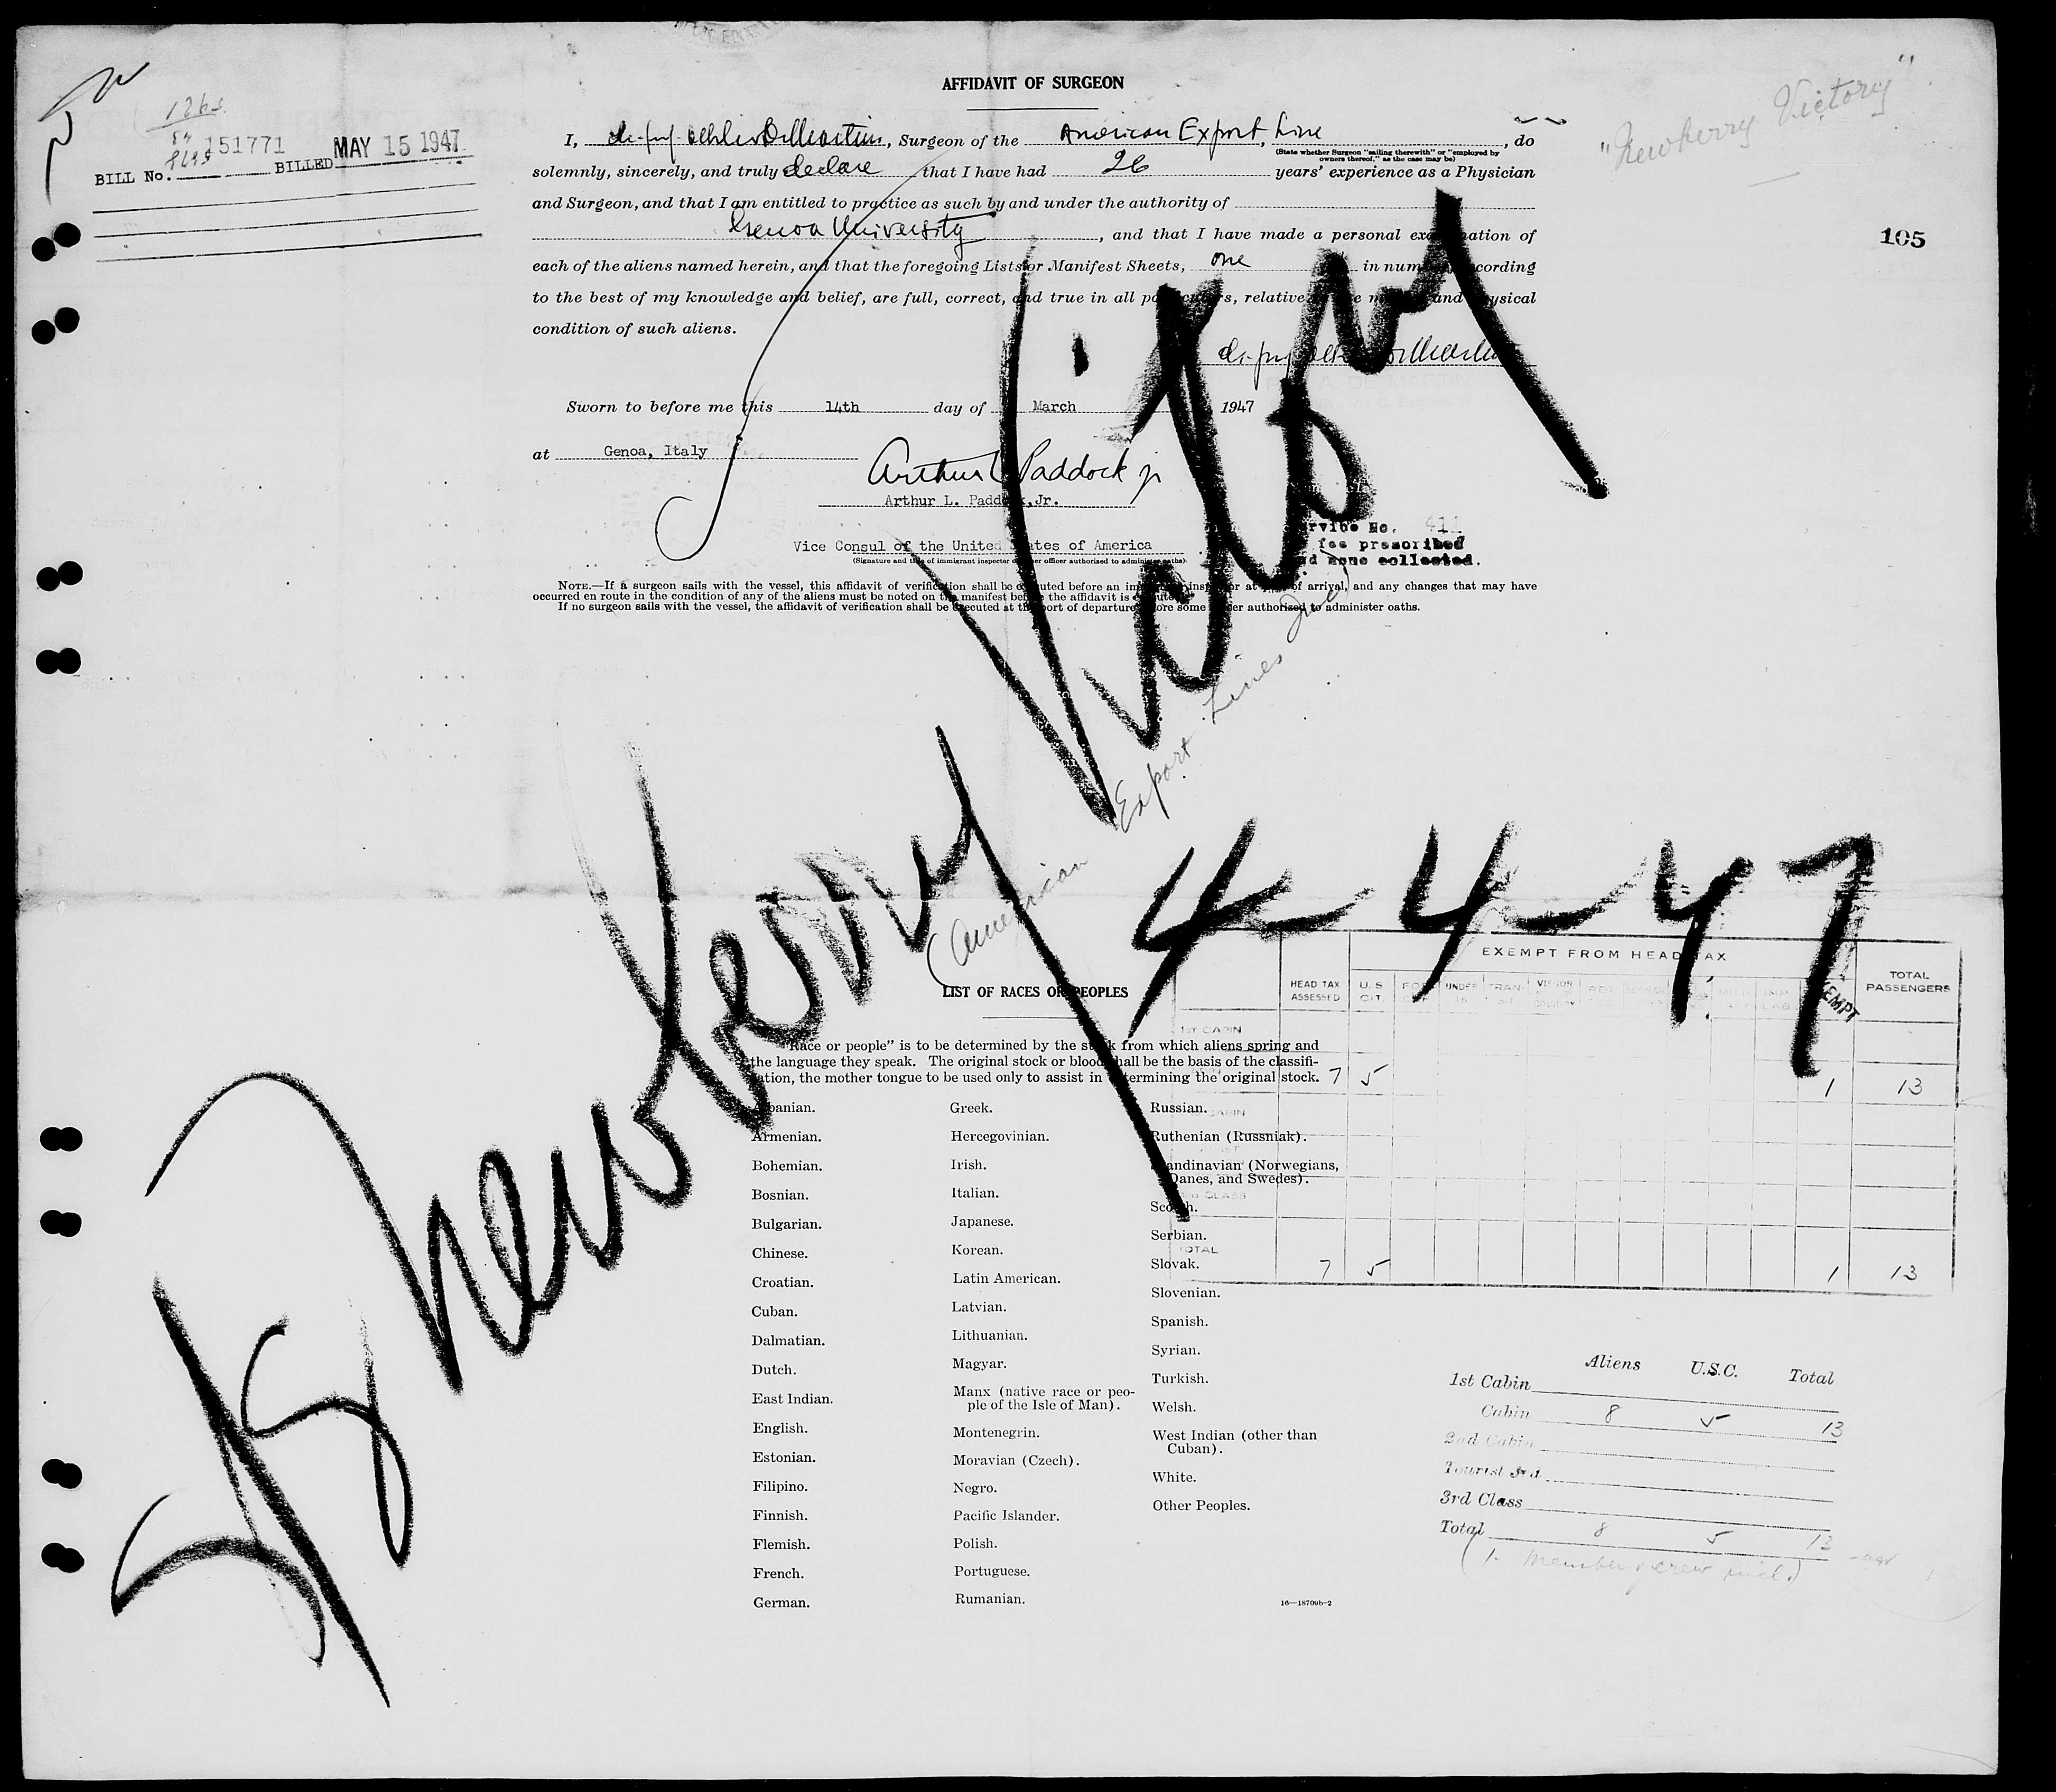 AFFIDAVIT OF SURGEON
"Newberry Victory"
151771
BILL No. BILLED MAY 15 1947
105
I, , Surgeon of the American Export Line, , do
(State whether Surgeon "sailing therewith" or "employed by
owners thereof," as the case may be)
solemnly, sincerely, and truly declare that I have had 26 years' experience as a Physician
and Surgeon, and that I am entitled to practice as such by and under the authority of
Genoa University, and that I have made a personal examination of
each of the aliens named herein, and that the foregoing Lists or Manifest Sheets, one in number, according
to the best of my knowledge and belief, are full, correct, and true in all particulars, relative to the mental and physical
condition of such aliens.
Sworn to before me this 14th day of March 1947
at Genoa, Italy
Arthur L Paddock jr
Arthur L. Paddock, Jr.
Vice Consul of the United States of America
(Signature and title of immigrant inspector or other officer authorized to administer oaths)
Service No. 411
fee prescribed
and none collected.
NOTE.—If a surgeon sails with the vessel, this affidavit of verification shall be executed before an immigrant inspector at port of arrival, and any changes that may have
occurred en route in the condition of any of the aliens must be noted on the manifest before the affidavit is executed.
If no surgeon sails with the vessel, the affidavit of verification shall be executed at the port of departure before some officer authorized to administer oaths.
SS Newberry Victory
4-4-47
(American Export Lines Inc)
EXEMPT FROM HEAD TAX
HEAD TAX ASSESSED U.S. CIT. UNDER 16 TRAN- EXEMPT TOTAL PASSENGERS
1ST CABIN
7 5 1 13
CABIN
CLASS
TOTAL 7 5 1 13
LIST OF RACES OR PEOPLES
"Race or people" is to be determined by the stock from which aliens spring and
the language they speak. The original stock or blood shall be the basis of the classifi-
cation, the mother tongue to be used only to assist in determining the original stock.
Albanian.
Armenian.
Bohemian.
Bosnian.
Bulgarian.
Chinese.
Croatian.
Cuban.
Dalmatian.
Dutch.
East Indian.
English.
Estonian.
Filipino.
Finnish.
Flemish.
French.
German.
Greek.
Hercegovinian.
Irish.
Italian.
Japanese.
Korean.
Latin American.
Latvian.
Lithuanian.
Magyar.
Manx (native race or peo-
ple of the Isle of Man).
Montenegrin.
Moravian (Czech).
Negro.
Pacific Islander.
Polish.
Portuguese.
Rumanian.
Russian.
Ruthenian (Russniak).
Scandinavian (Norwegians,
Danes, and Swedes).
Scotch.
Serbian.
Slovak.
Slovenian.
Spanish.
Syrian.
Turkish.
Welsh.
West Indian (other than
Cuban).
White.
Other Peoples.
16—18709b-2
Aliens U.S.C. Total
1st Cabin
Cabin 8 5 13
2nd Cabin
Tourist 3rd
3rd Class
Total 8 5 13
(1- member of crew incl.)